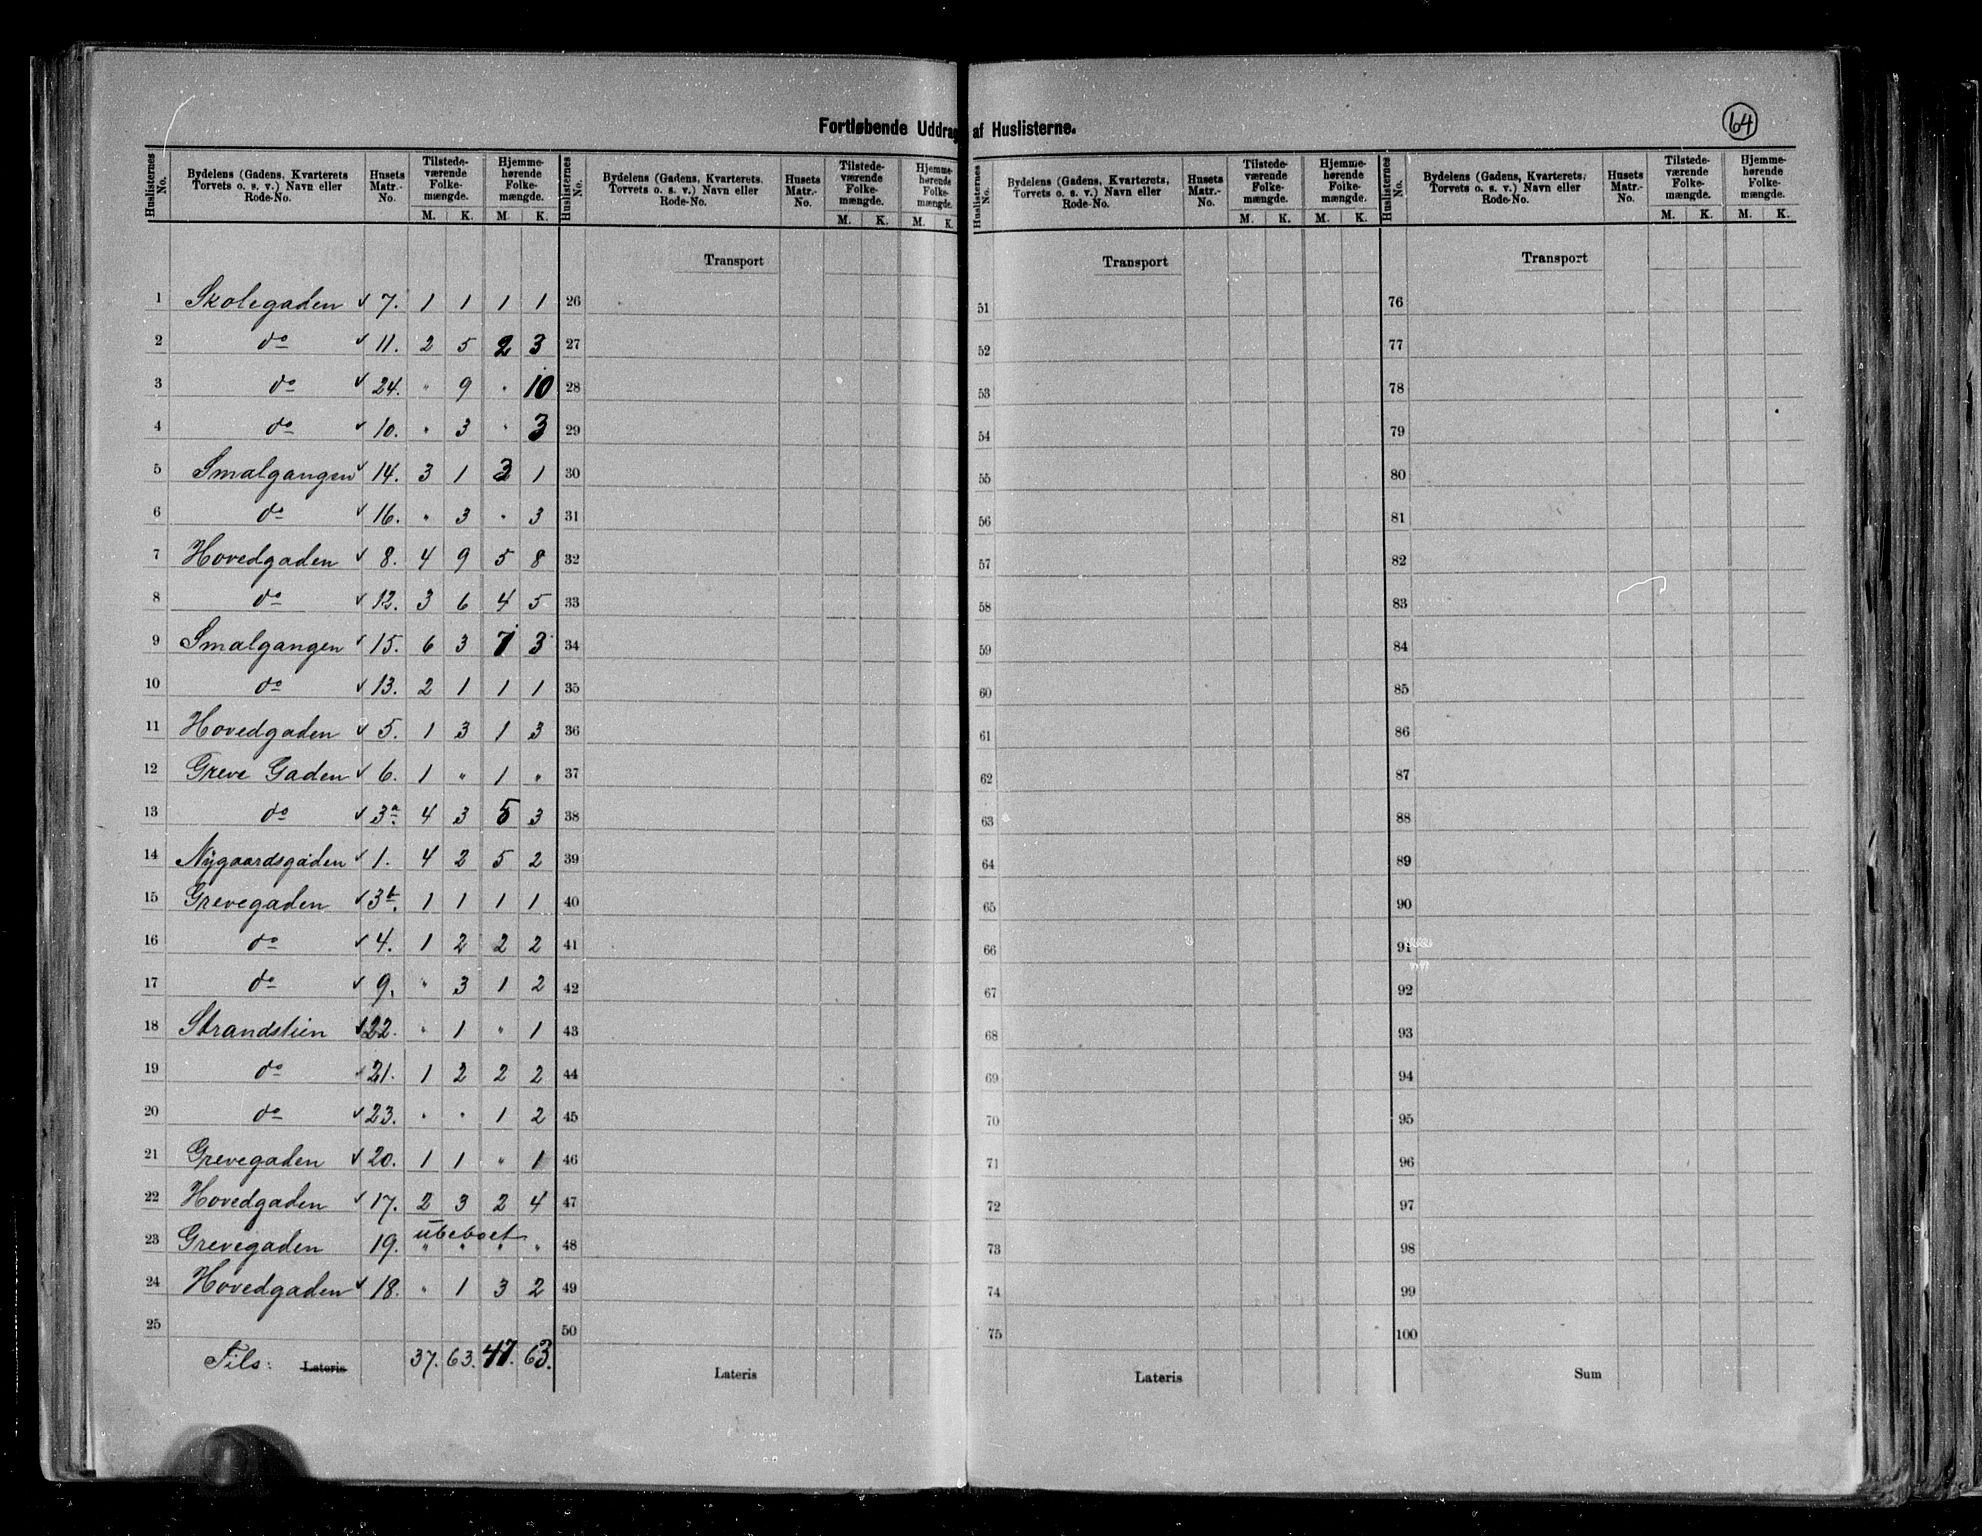 Fortløbende Uddrag af Huslisterne.
64
Huslisternes No. | Bydelens (Gadens, Kvarterets Torvets o. s. v.) Navn eller Rode-No. | Husets Matr.-No. | Tilstedeværende Folkemængde. M. K. | Hjemmehørende Folkemængde. M. K.
Huslisternes No. | Bydelens (Gadens, Kvarterets, Torvets o. s. v.) Navn eller Rode-No. | Husets Matr.-No. | Tilstedeværende Folkemængde. M. K. | Hjemmehørende Folkemængde. M. K.
Huslisternes No. | Bydelens (Gadens, Kvarterets, Torvets o. s. v.) Navn eller Rode-No. | Husets Matr.-No. | Tilstedeværende Folkemængde. M. K. | Hjemmehørende Folkemængde. M. K.
Huslisternes No. | Bydelens (Gadens, Kvarterets, Torvets o. s. v.) Navn eller Rode-No. | Husets Matr.-No. | Tilstedeværende Folkemængde. M. K. | Hjemmehørende Folkemængde. M. K.
Transport Transport Transport
1 Skolegaden √ 7. 1 1 1 1 26 51 76
2 do √ 11. 2 5 2 3 27 52 77
3 do √ 24. " 9 " 10 28 53 78
4 do √ 10. " 3 " 3 29 54 79
5 Smalgangen √ 14. 3 1 3 1 30 55 80
6 do √ 16. " 3 " 3 31 56 81
7 Hovedgaden √ 8. 4 9 5 8 32 57 82
8 do √ 12. 3 6 4 5 33 58 83
9 Smalgangen √ 15. 6 3 7 3 34 59 84
10 do √ 13. 2 1 1 1 35 60 85
11 Hovedgaden √ 5. 1 3 1 3 36 61 86
12 Greve Gaden √ 6. 1 " 1 " 37 62 87
13 do √ 3a. 4 3 5 3 38 63 88
14 Nygaardsgaden √ 1. 4 2 5 2 39 64 89
15 Grevegaden √ 3b. 1 1 1 1 40 65 90
16 do √ 4. 1 2 2 2 41 66 91
17 do √ 9. " 3 1 2 42 67 92
18 Strandstien √ 22. " 1 " 1 43 68 93
19 do √ 21. 1 2 2 2 44 69 94
20 do √ 23. " " 1 2 45 70 95
21 Grevegaden √ 20. 1 1 " 1 46 71 96
22 Hovedgaden √ 17. 2 3 2 4 47 72 97
23 Grevegaden 19. ubeboet " " " " 48 73 98
24 Hovedgaden √ 18. " 1 3 2 49 74 99
25 50 75 100
Tils: Lateris 37. 63. 47. 63. Lateris Lateris Sum